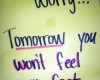 worry...
Tomorrow you
won't feel